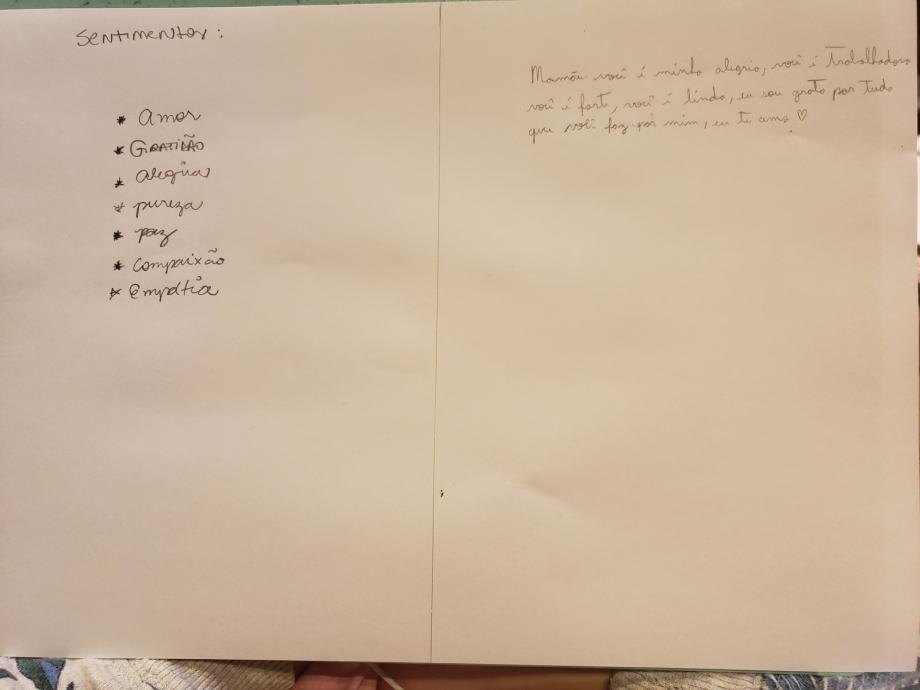 Sentimentos:
* Amor
* GRATIDÃO
* Alegria
* pureza
* paz
* Compaixão
* Empatia
Mamãe você é minha alegria, você é Trabalhadora
você é forte, você é linda, eu sou grato por tudo
que você faz por mim, eu te amo ♡